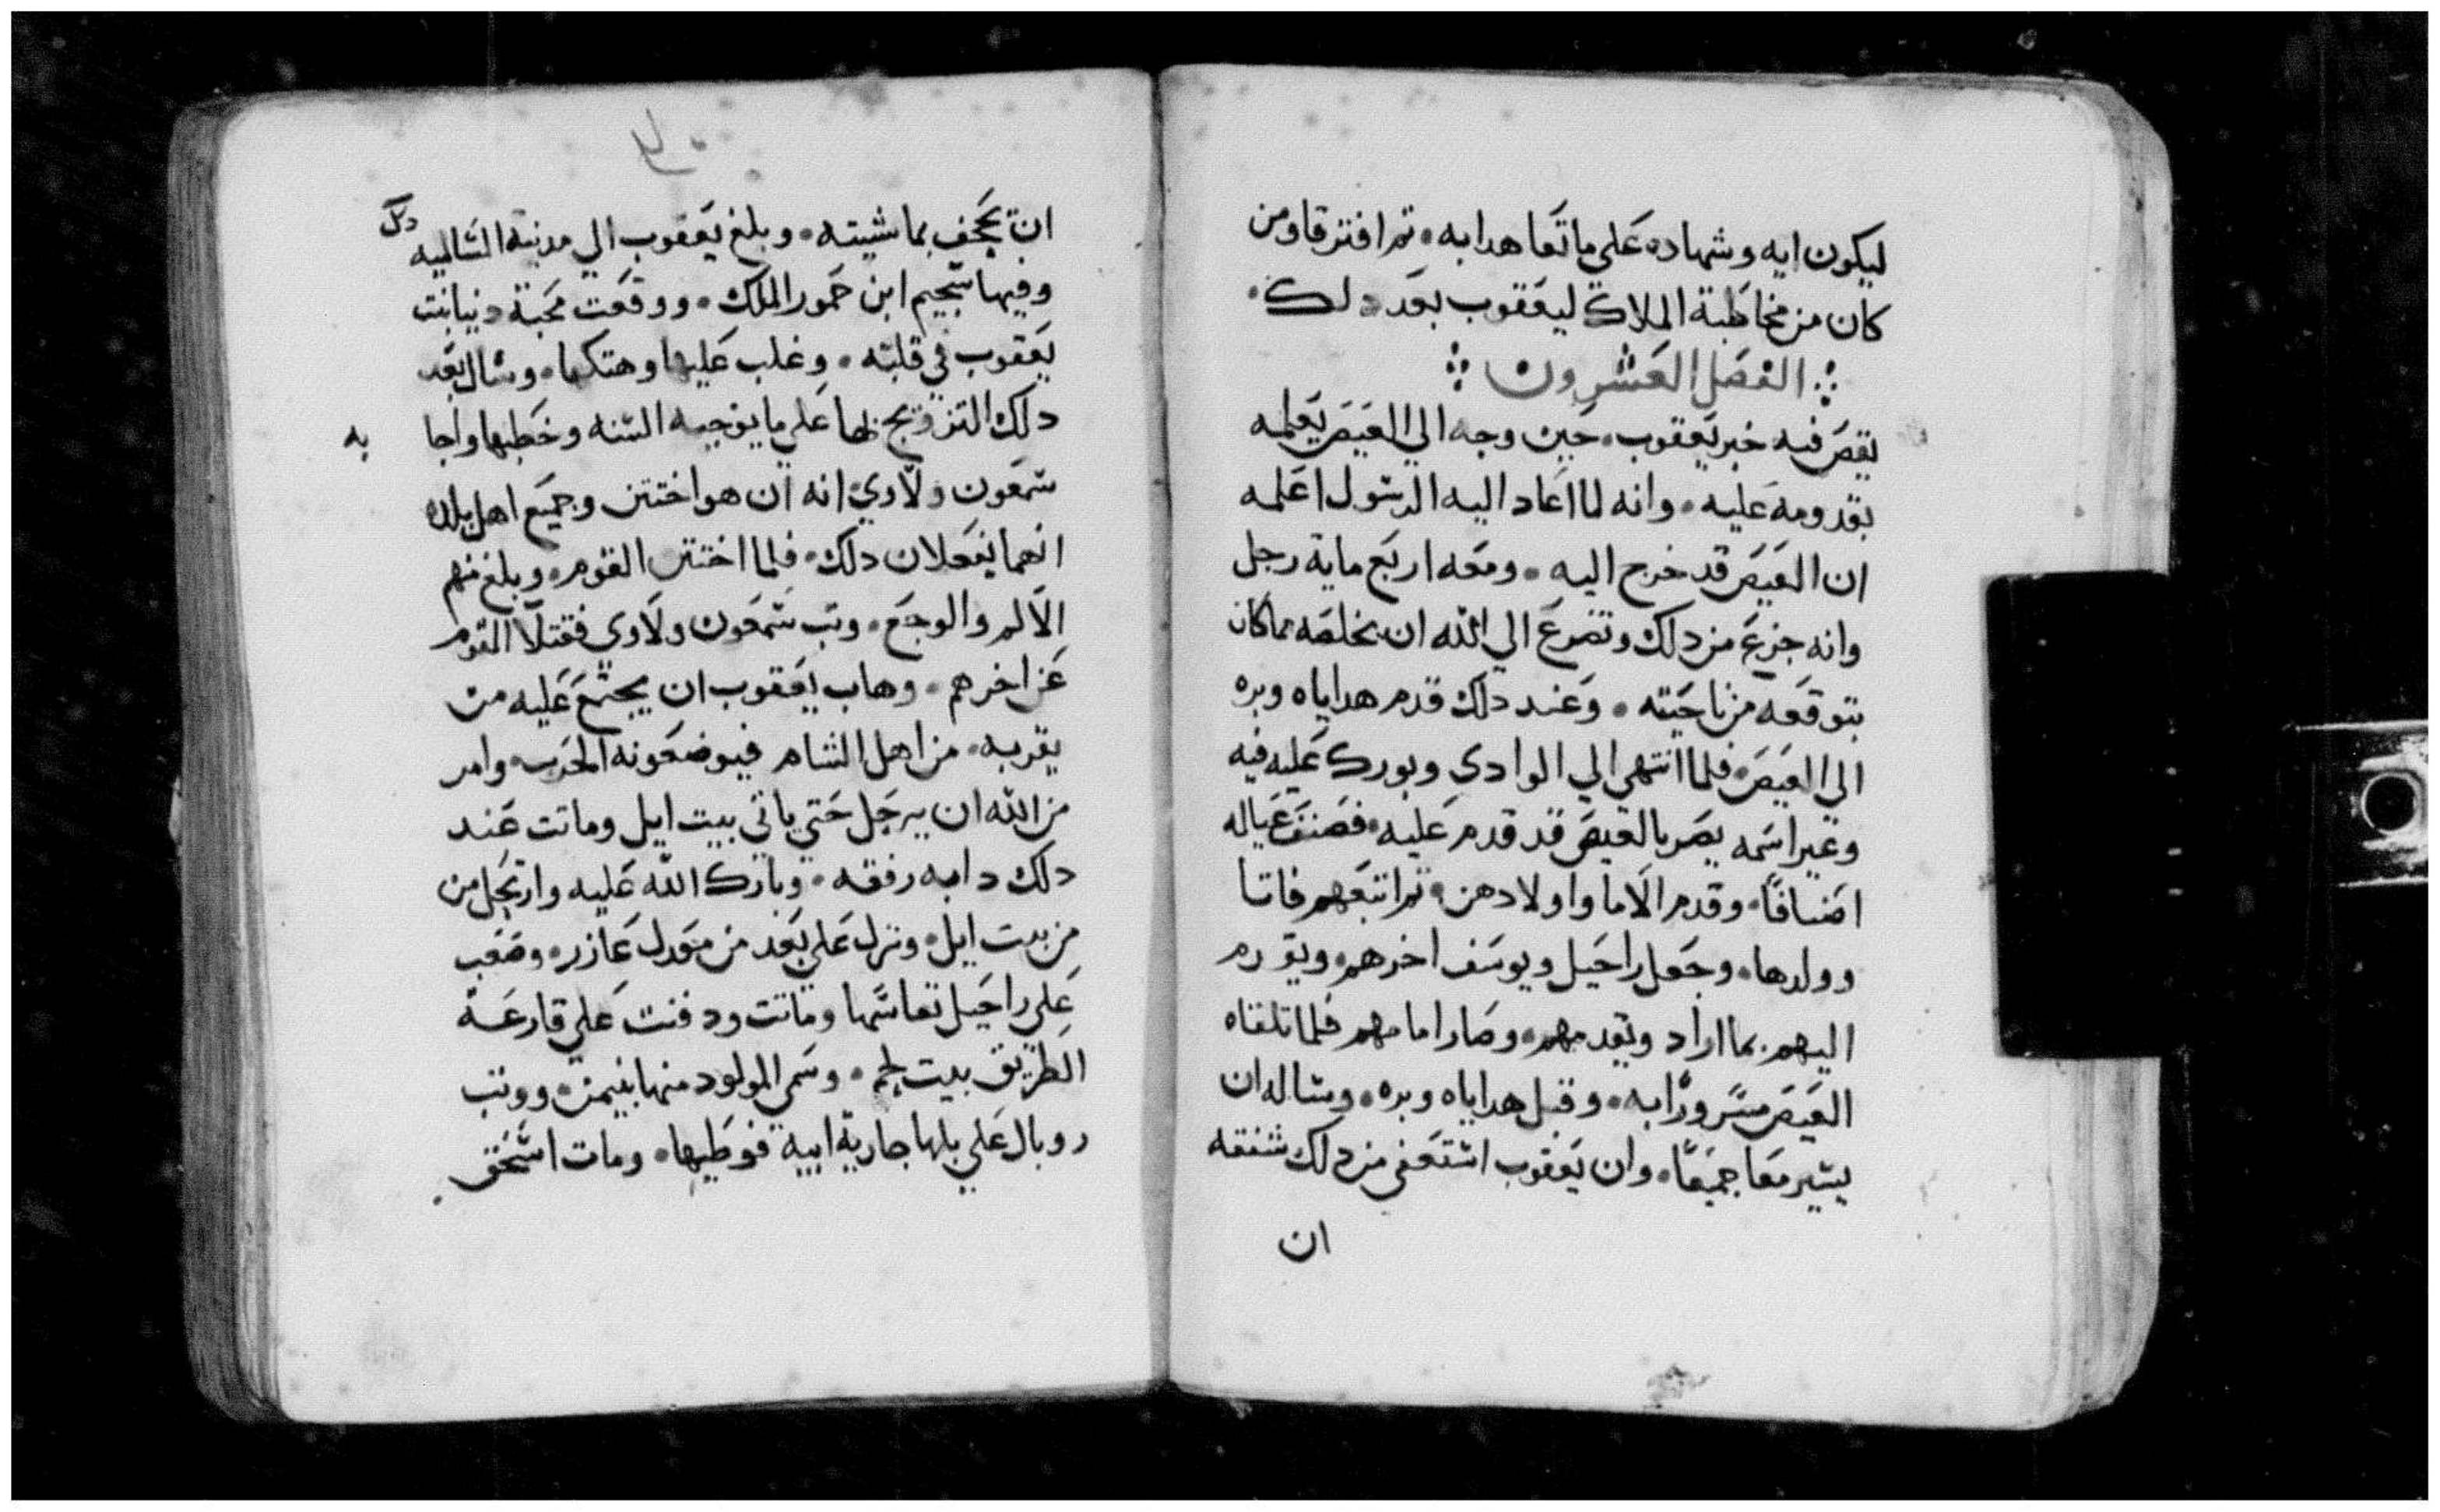 ليكون ايه وشهاده على ما تعاهدا به • ثم افترقا ومن
كان من مخاطبة الملاك ليعقوب بعد دلك •
الفصل العشرون
يقص فيه خبر يعقوب • حين وجه الي العيص يعلمه
بقدومه عليه • وانه لما اعاد اليه الرسول اعلمه
ان العيص قد خرج اليه • ومعه اربع ماية رجل
وانه جزع من دلك وتضرع الي الله ان يخلصه مما كان
يتوقعه من ناحيته • وعند دلك قدم هداياه وبره
الي العيص • فلما انتهي الي الوادي وبورك عليه فيه
وغير اسمه بصر بالعيص قد قدم عليه • فصنف عياله
اصنافا • وقدم الاما واولادهن • ثم اتبعهم
وولدها • وجعل راحيل ويوسف اخرهم •
اليهم بما اراد وتقدمهم • وصار امامهم فلما تلقاه
العيص مسرورا به • وقبل هداياه وبره • وساله ان
يسير معا جميعا • وان يعقوب استعفي من دلك شفقه
ان
ان يجحف بماشيته • وبلغ يعقوب الي مدينة الساليه
وفيها سجيم ابن حمور الملك • ووقعت محبة دينا بنت
يعقوب في قلبه • وغلب عليها وهتكها • وسال بعد
دلك التزويج بها على ما يوجبه السنه وخطبها واجابه
شمعون ولاوي انه ان هو اختتن وجميع اهل بلده
انهما يفعلان دلك • فلما اختتن القوم • وبلغ منهم
الالم والوجع • وتب شمعون ولاوي فقتلا القوم
عن اخرهم • وهاب يعقوب ان يجتمع عليه من
يقربه • من اهل الشام فيوضعونه الحرب • وامر
من الله ان يرحل حتي ياتي بيت ايل وماتت عند
دلك دابه رفقه • وبارك الله عليه وارتحل من
من بيت ايل • ونزل على بعد من مجدل عازر • وصعب
على راحيل نفاسها وماتت ودفنت على قارعة
الطريق بيت لحم • وسمي المولود منها بنيمن • ووتب
روبال على بلها جارية ابيه فوطيها • ومات اسحق •